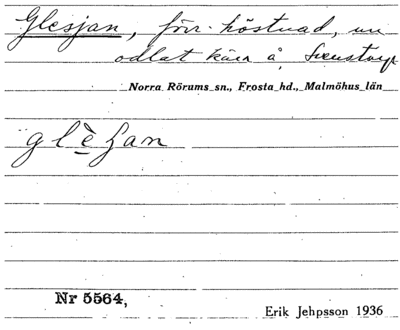 Glesjan, förr höstnad, nu
odlat kärr å Svenstorp
Norra Rörums sn., Frosta hd., Malmöhus län
glèʃan
Nr 5564,
Erik Jehpsson 1936